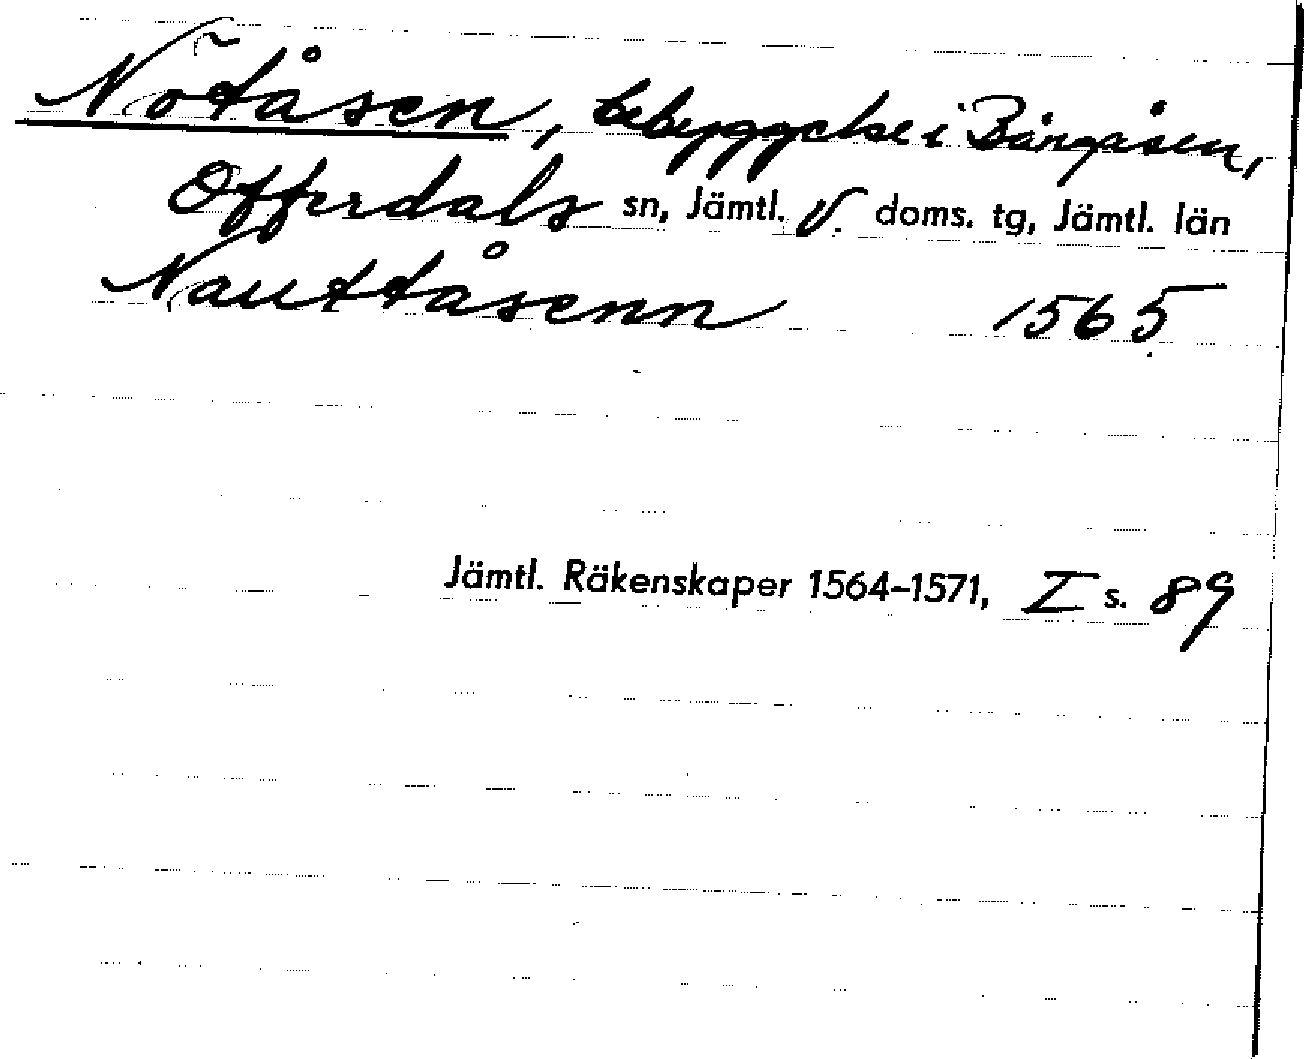 Nötåsen, bebyggelse i Bångåsen,
Offerdals sn, Jämtl. V. doms. tg, Jämtl. län
Nauttåsenn 1565
Jämtl. Räkenskaper 1564–1571, I s. 89